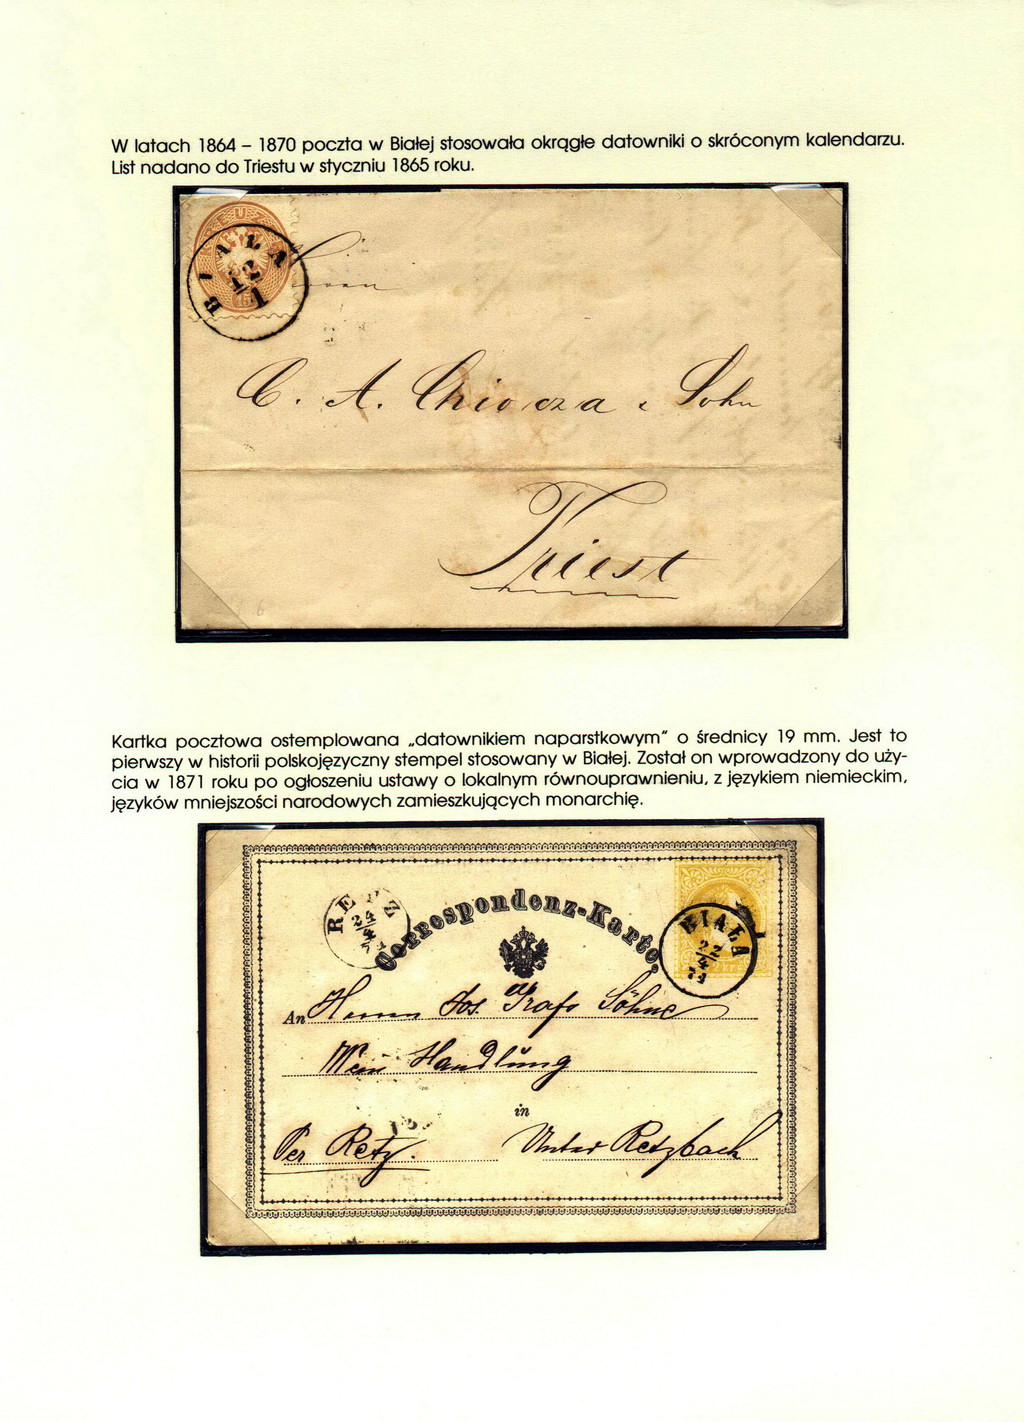 W latach 1864 – 1870 poczta w Białej stosowała okrągłe datowniki o skróconym kalendarzu.
List nadano do Triestu w styczniu 1865 roku.
BIALA
22
1
15
Herrn
C. A. Chiozza & Sohn
Triest
Kartka pocztowa ostemplowana „datownikiem naparstkowym" o średnicy 19 mm. Jest to
pierwszy w historii polskojęzyczny stempel stosowany w Białej. Został on wprowadzony do uży-
cia w 1871 roku po ogłoszeniu ustawy o lokalnym równouprawnieniu, z językiem niemieckim,
języków mniejszości narodowych zamieszkujących monarchię.
24
4
Correspondenz-Karte.
BIAŁA
22
4
An Herrn Jos. Grafs Söhne
Wein Handlung
in
Per Retz. Unter Retzbach